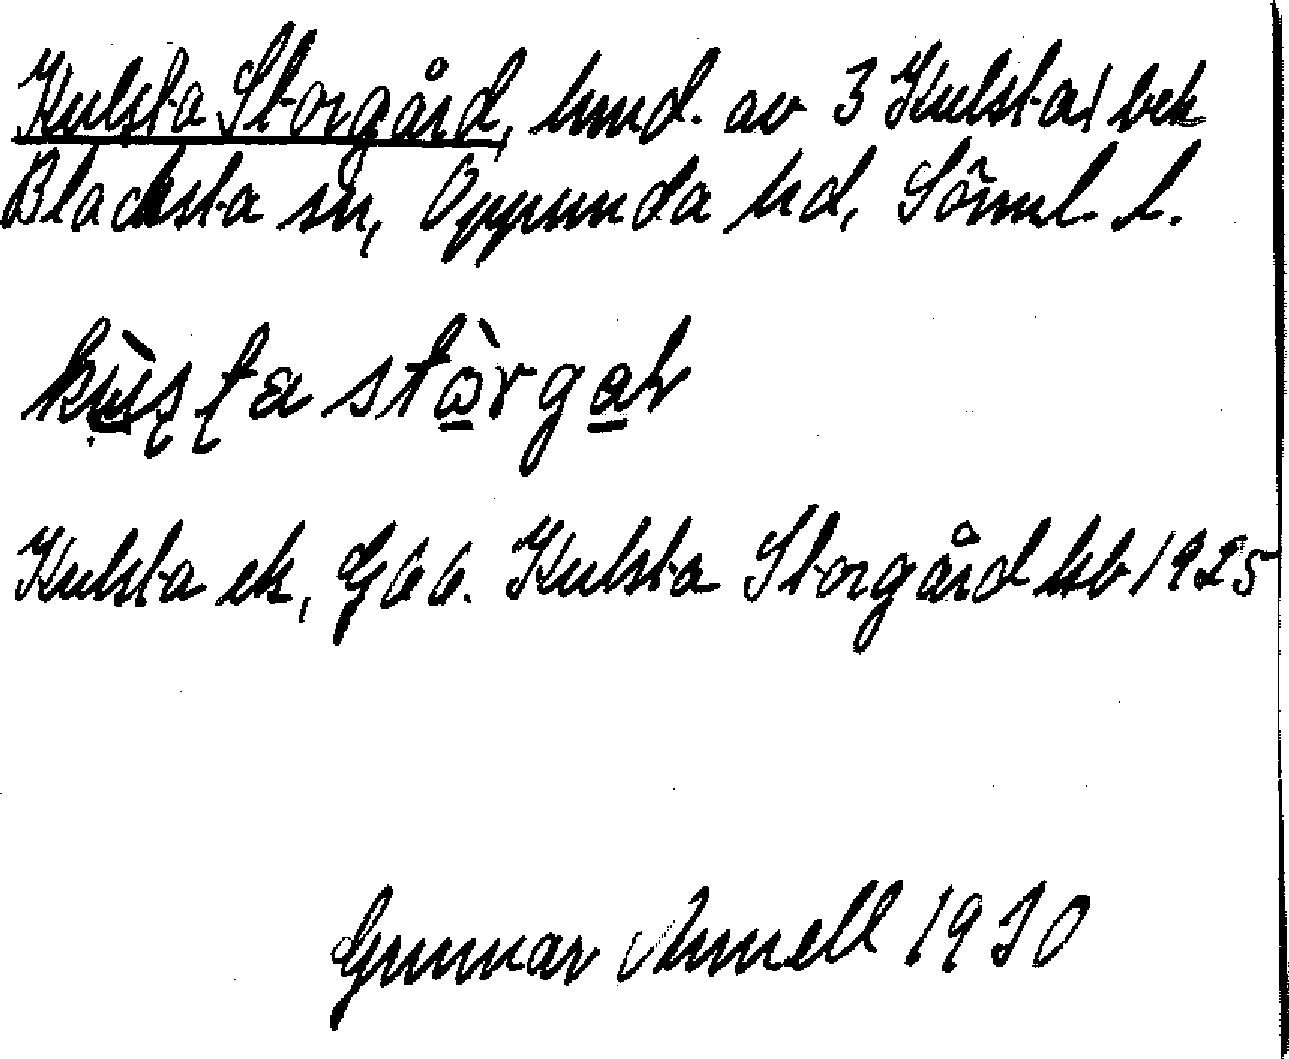 Kulsta Storgård, hmd. av 3 Kulsta, bek
Blacksta sn, Oppunda hd, Sörml. l.
kùṣṭa stòrgaḥ
Kulsta ek, G66. Kulsta Storgård hb 1925
Gunnar Annell 1930